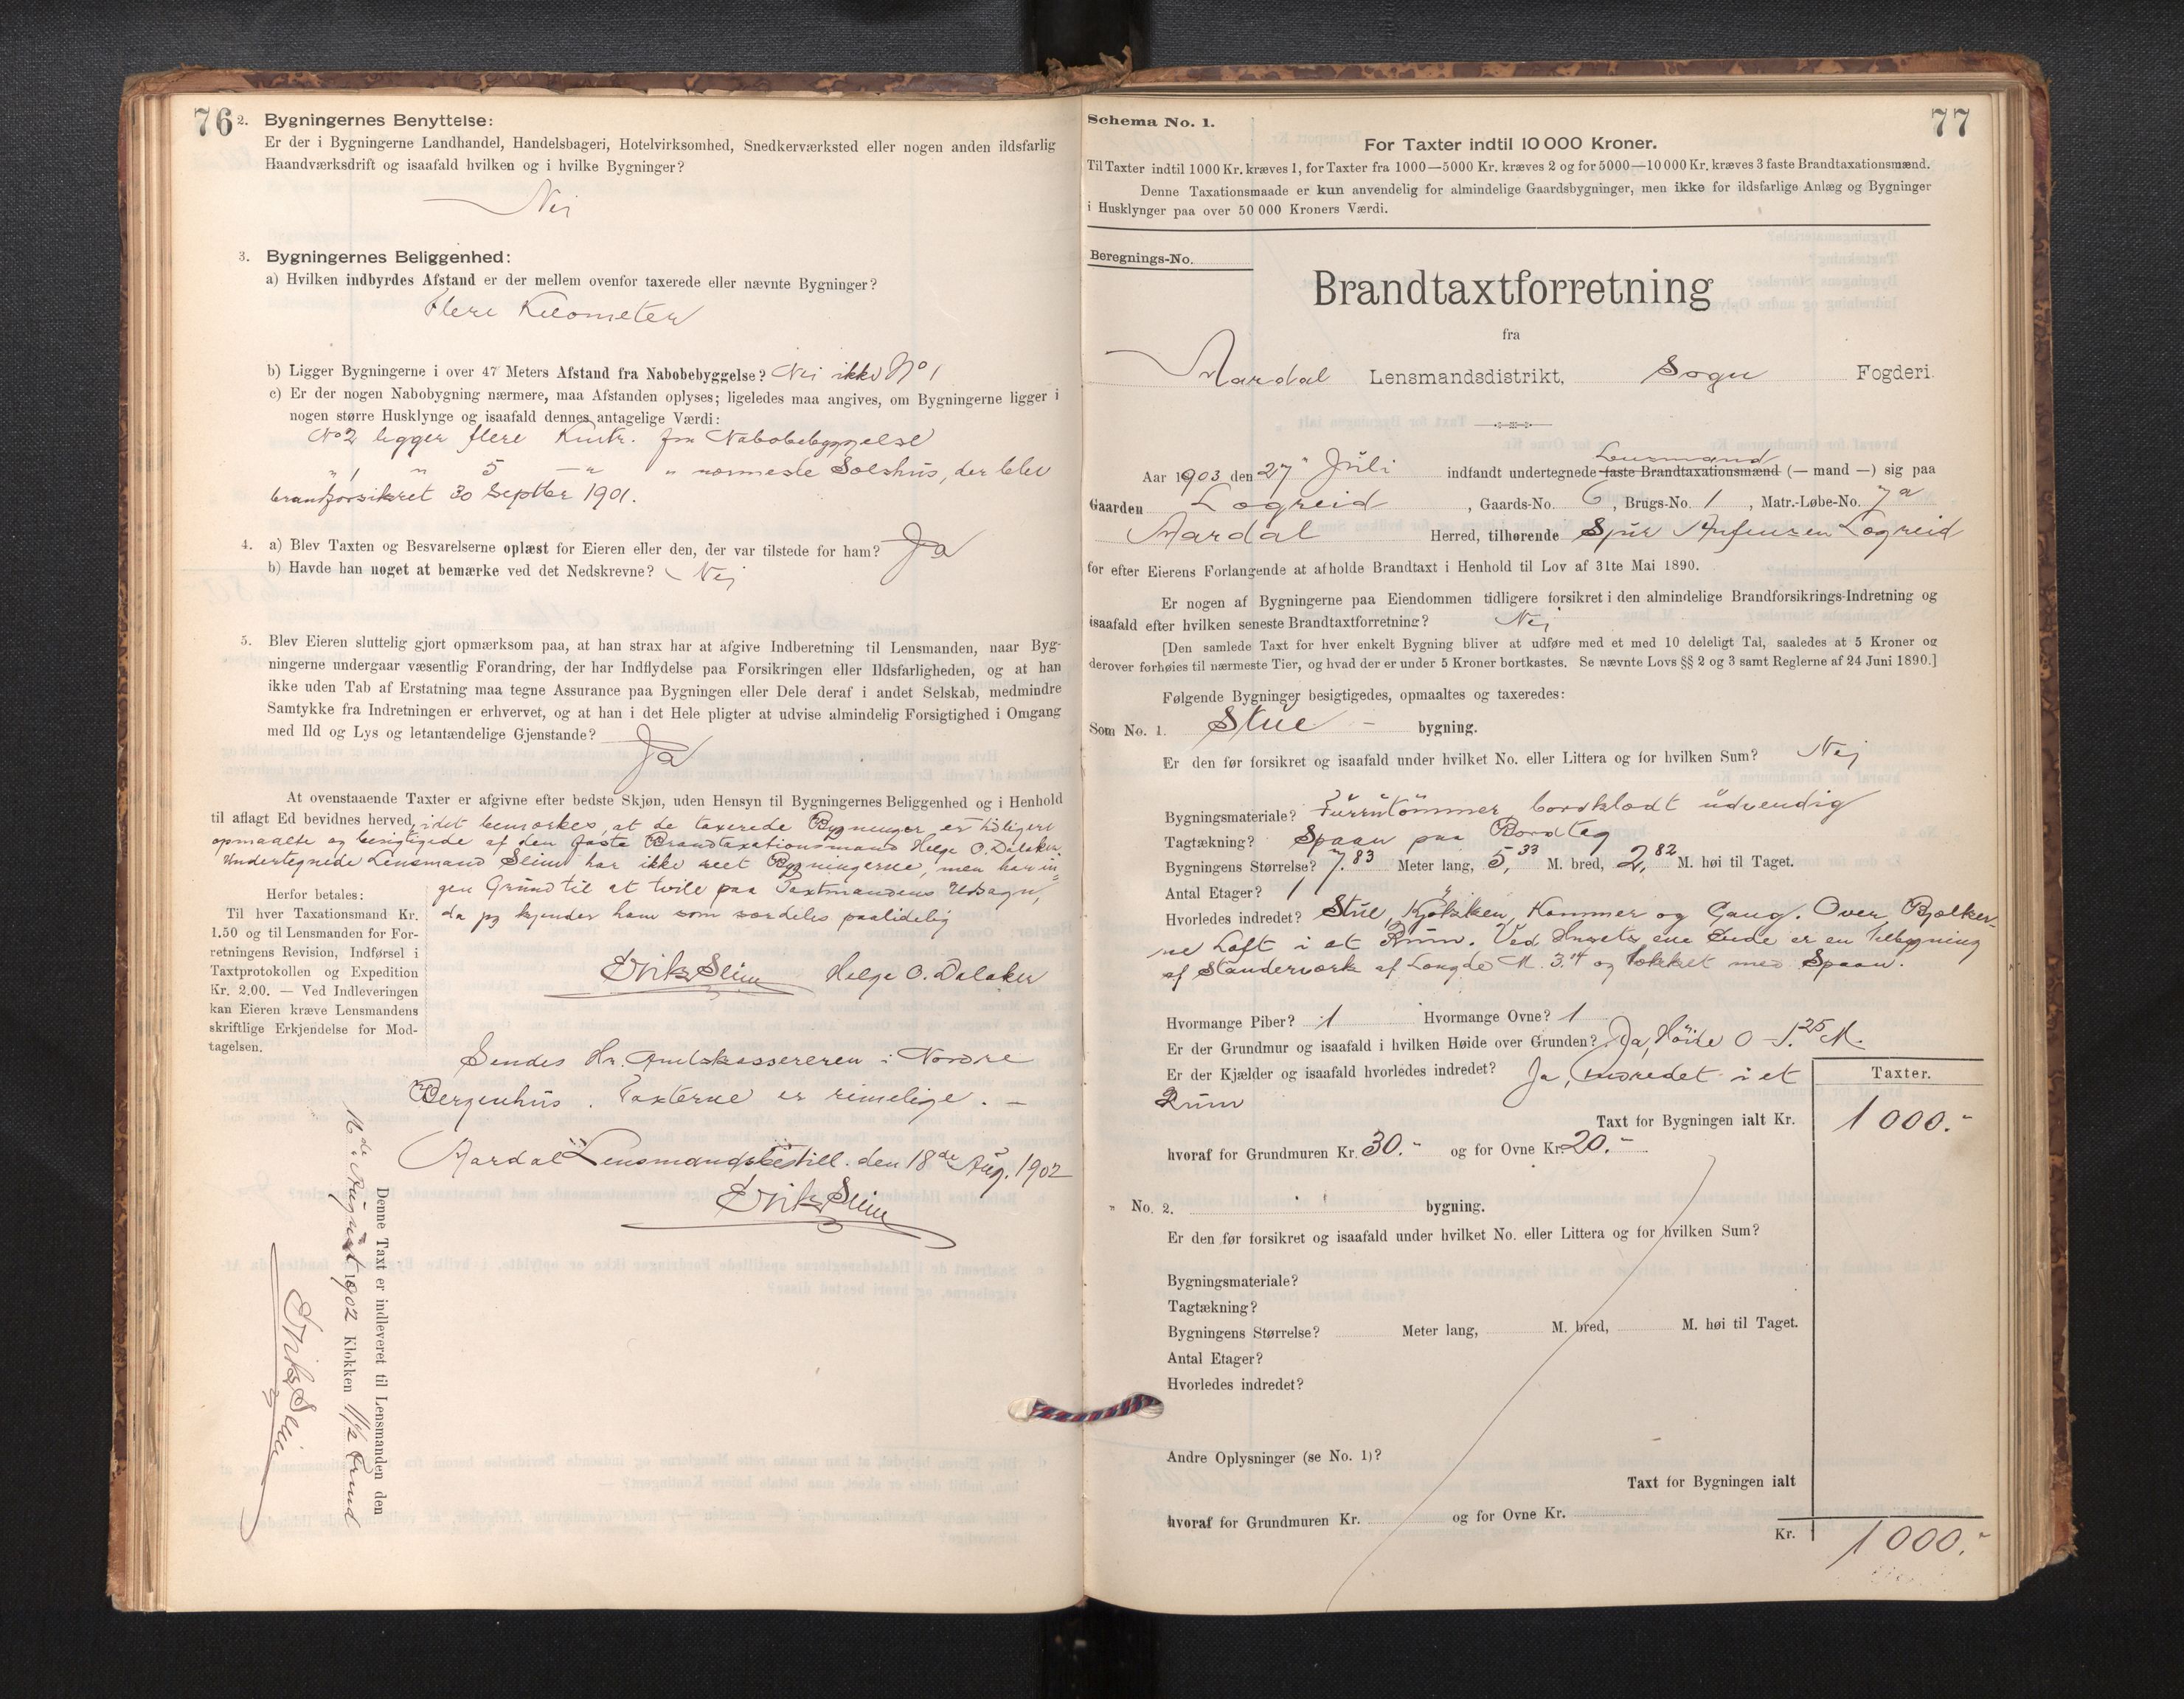 76
2. Bygningernes Benyttelse:
Er der i Bygningerne Landhandel, Handelsbageri, Hotelvirksomhed, Snedkerværksted eller nogen anden ildsfarlig
Haandværksdrift og isaafald hvilken og i hvilke Bygninger?
Nei
3. Bygningernes Beliggenhed:
a) Hvilken indbyrdes Afstand er der mellem ovenfor taxerede eller nævnte Bygninger?
Flere Kilometer
b) Ligger Bygningerne i over 47 Meters Afstand fra Nabobebyggelse? Nei ikke No 1
c) Er der nogen Nabobygning nærmere, maa Afstanden oplyses; ligeledes maa angives, om Bygningerne ligger i
nogen større Husklynge og isaafald dennes antagelige Værdi:
No 2 ligger flere Kmtr. fra Nabobebyggelse
" 1 " 5 — " " nærmeste Sælshus, der blev
brandforsikret 30 Septber 1901.
4. a) Blev Taxten og Besvarelserne oplæst for Eieren eller den, der var tilstede for ham? Ja
b) Havde han noget at bemærke ved det Nedskrevne? Nej
5. Blev Eieren sluttelig gjort opmærksom paa, at han strax har at afgive Indberetning til Lensmanden, naar Byg-
ningerne undergaar væsentlig Forandring, der har Indflydelse paa Forsikringen eller Ildsfarligheden, og at han
ikke uden Tab af Erstatning maa tegne Assurance paa Bygningen eller Dele deraf i andet Selskab, medmindre
Samtykke fra Indretningen er erhvervet, og at han i det Hele pligter at udvise almindelig Forsigtighed i Omgang
med Ild og Lys og letantændelige Gjenstande?
Ja
At ovenstaaende Taxter er afgivne efter bedste Skjøn, uden Hensyn til Bygningernes Beliggenhed og i Henhold
til aflagt Ed bevidnes herved, idet bemærkes, at de taxerede Bygninger er tidligere
opmaalte og besigtigede af den faste Brandtaxationsmand Helge O. Dalaker.
Undertegnede Lensmand Sliim har ikke seet Bygningerne, men har in-
gen Grund til at tvile paa Taxtmandens Udsagn,
da jeg kjender ham som særdeles paalidelig
Erik Sliim Helge O. Dalaker
Herfor betales:
Til hver Taxationsmand Kr.
1.50 og til Lensmanden for For-
retningens Revision, Indførsel i
Taxtprotokollen og Expedition
Kr. 2.00. — Ved Indleveringen
kan Eieren kræve Lensmandens
skriftlige Erkjendelse for Mod-
tagelsen.
Sendes Hr. Amtskassereren i Nordre
Bergenhus. Taxterne er rimelige. —
Aardal Lensmandsbestill. den 18de Aug. 1902
Erik Sliim
Denne Taxt er indleveret til Lensmanden den
16de August 1902 Klokken 11½ Formd
Erik Sliim
77
Schema No. 1.
For Taxter indtil 10 000 Kroner.
Til Taxter indtil 1000 Kr. kræves 1, for Taxter fra 1000—5000 Kr. kræves 2 og for 5000—10000 Kr. kræves 3 faste Brandtaxationsmænd.
Denne Taxationsmaade er kun anvendelig for almindelige Gaardsbygninger, men ikke for ildsfarlige Anlæg og Bygninger
i Husklynger paa over 50 000 Kroners Værdi.
Beregnings-No.
Brandtaxtforretning
fra
Aardal Lensmandsdistrikt, Sogn Fogderi.
Lensmand
Aar 1903 den 27" Juli indfandt undertegnede faste Brandtaxationsmænd (— mand —) sig paa
Gaarden Lægreid, Gaards-No. 6, Brugs-No. 1, Matr.-Løbe-No. 7a
Aardal Herred, tilhørende Sjur Anfensen Lægreid
for efter Eierens Forlangende at afholde Brandtaxt i Henhold til Lov af 31te Mai 1890.
Er nogen af Bygningerne paa Eiendommen tidligere forsikret i den almindelige Brandforsikrings-Indretning og
isaafald efter hvilken seneste Brandtaxtforretning? Nej
[Den samlede Taxt for hver enkelt Bygning bliver at udføre med et med 10 deleligt Tal, saaledes at 5 Kroner og
derover forhøies til nærmeste Tier, og hvad der er under 5 Kroner bortkastes. Se nævnte Lovs §§ 2 og 3 samt Reglerne af 24 Juni 1890.]
Følgende Bygninger besigtigedes, opmaaltes og taxeredes:
Som No. 1. Stue - bygning.
Er den før forsikret og isaafald under hvilket No. eller Littera og for hvilken Sum? Nej
Bygningsmateriale? Furutømmer bordklædt udvendig
Tagtækning? Spaan paa Bordtag
Bygningens Størrelse? 7.83 Meter lang, 5,33 M. bred, 2,82 M. høi til Taget.
Antal Etager? 1
Hvorledes indredet? Stue, Kjøkken, Kammer og Gang. Over Bjælker-
ne Loft i et Rum. Ved Husets ene Ende er en Tilbygning
af Stænderværk af Længde M. 3.14 og tækket med Spaan.
Hvormange Piber? 1 Hvormange Ovne? 1
Er der Grundmur og isaafald i hvilken Høide over Grunden? Ja, Høide 0 - 1.25 M.
Er der Kjælder og isaafald hvorledes indredet? Ja, indredet i et
Rum
Taxter.
Taxt for Bygningen ialt Kr. 1000.-
hvoraf for Grundmuren Kr. 30.- og for Ovne Kr. 20.-
" No. 2. bygning.
Er den før forsikret og isaafald under hvilket No. eller Littera og for hvilken Sum?
Bygningsmateriale?
Tagtækning?
Bygningens Størrelse? Meter lang, M. bred, M. høi til Taget.
Antal Etager?
Hvorledes indredet?
Andre Oplysninger (se No. 1)?
Taxt for Bygningen ialt
hvoraf for Grundmuren Kr. og for Ovne Kr.
Kr. 1000.-